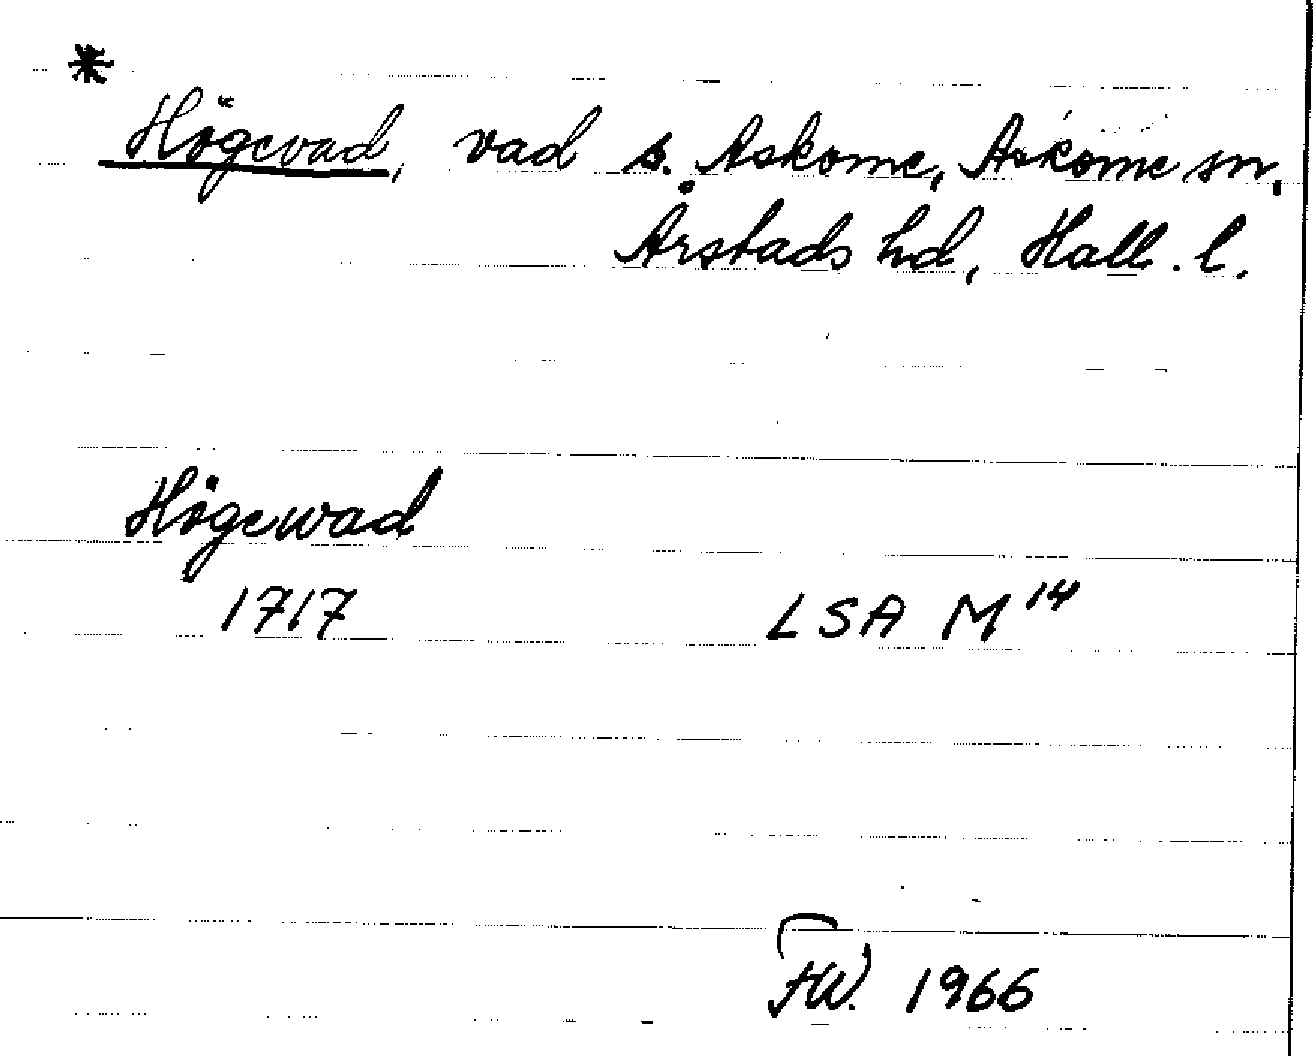 *
Högevad, vad s. Askome, Askome sn,
Årstads hd, Hall. l.
Högewad
1717 LSA M 14
FW. 1966